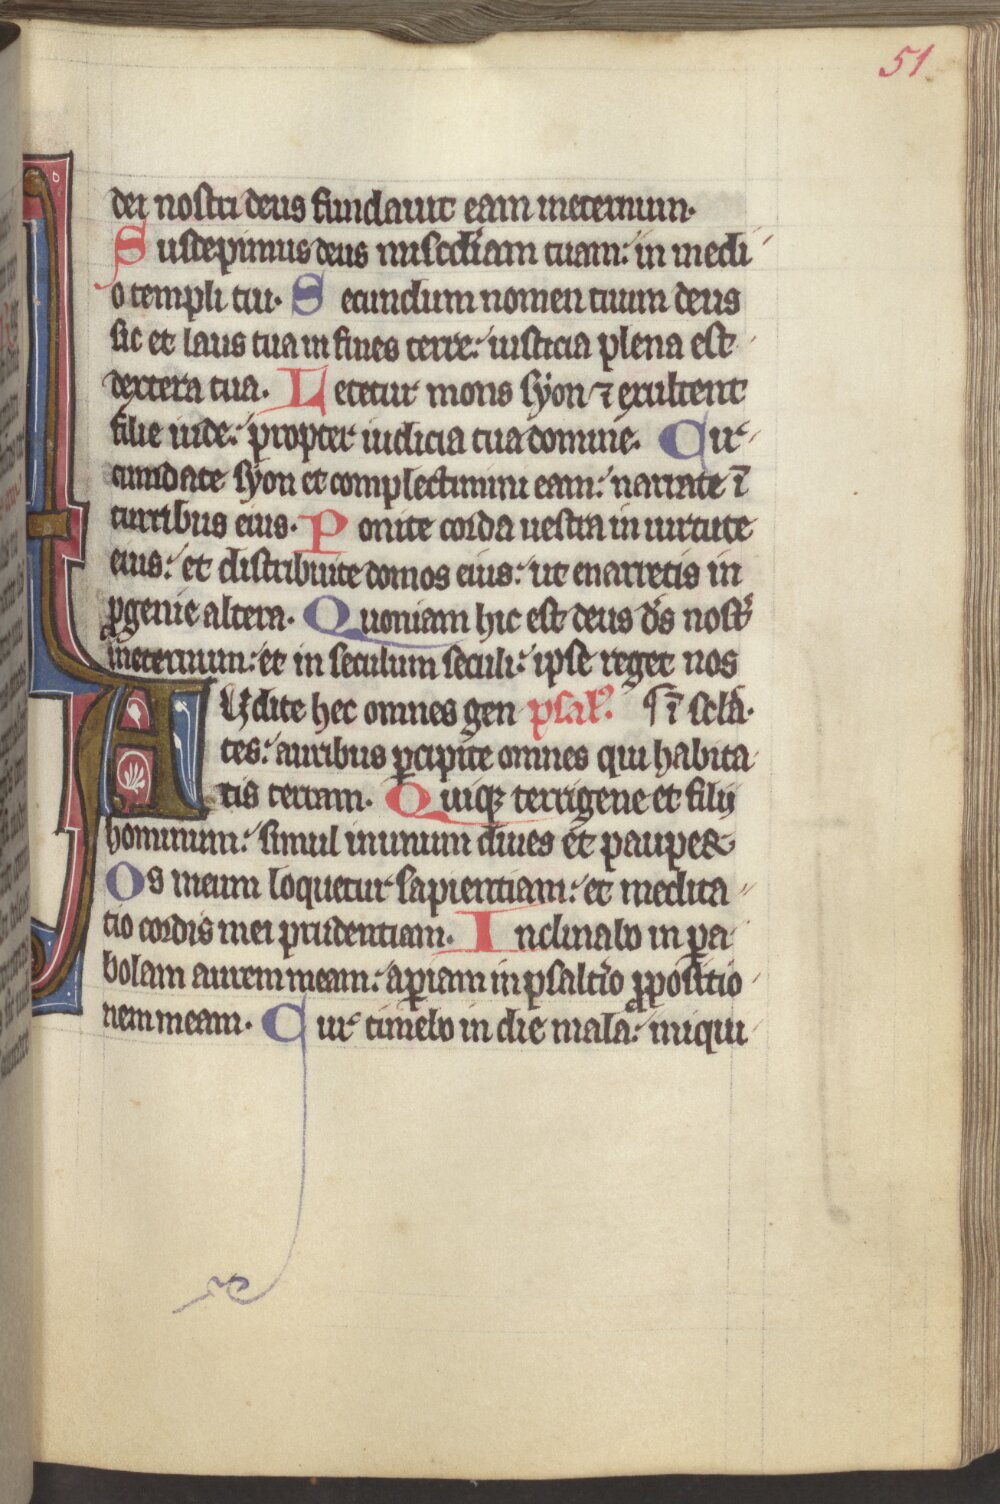 51
dei nostri deus fundauit eam ineternum.
Suscepimus deus misc̄diam tuam: in medi
o templi tui. Secundum nomen tuum deus
sic et laus tua in fines terre: iusticia plena est
dextera tua. Letetur mons syon ⁊ exultent
filie iude: propter iudicia tua domine. Cir
cumdate syon et complectimini eam: narrate ī
turribus eius. Ponite corda uestra in uirtute
eius: et distribuite domos eius: ut enarretis in
ꝓgenie altera. Quoniam hic est deus d̄s nost̄
ineternum: et in seculum seculi: ipse reget nos
AUdite hec omnes gen psal᷒. ī scl̄a.
tes: auribus ꝑcipite omnes qui habita
tis terram. Quiqꝫ terrigene et filij
hominum: simul inunum diues et pauper
Os meum loquetur sapientiam: et medita
tio cordis mei prudentiam. Inclinabo in ꝑa
bolam aurem meam: aꝑiam in psalt̄io ꝓpositio
nem meam. Cur timebo in die mala: iniqui